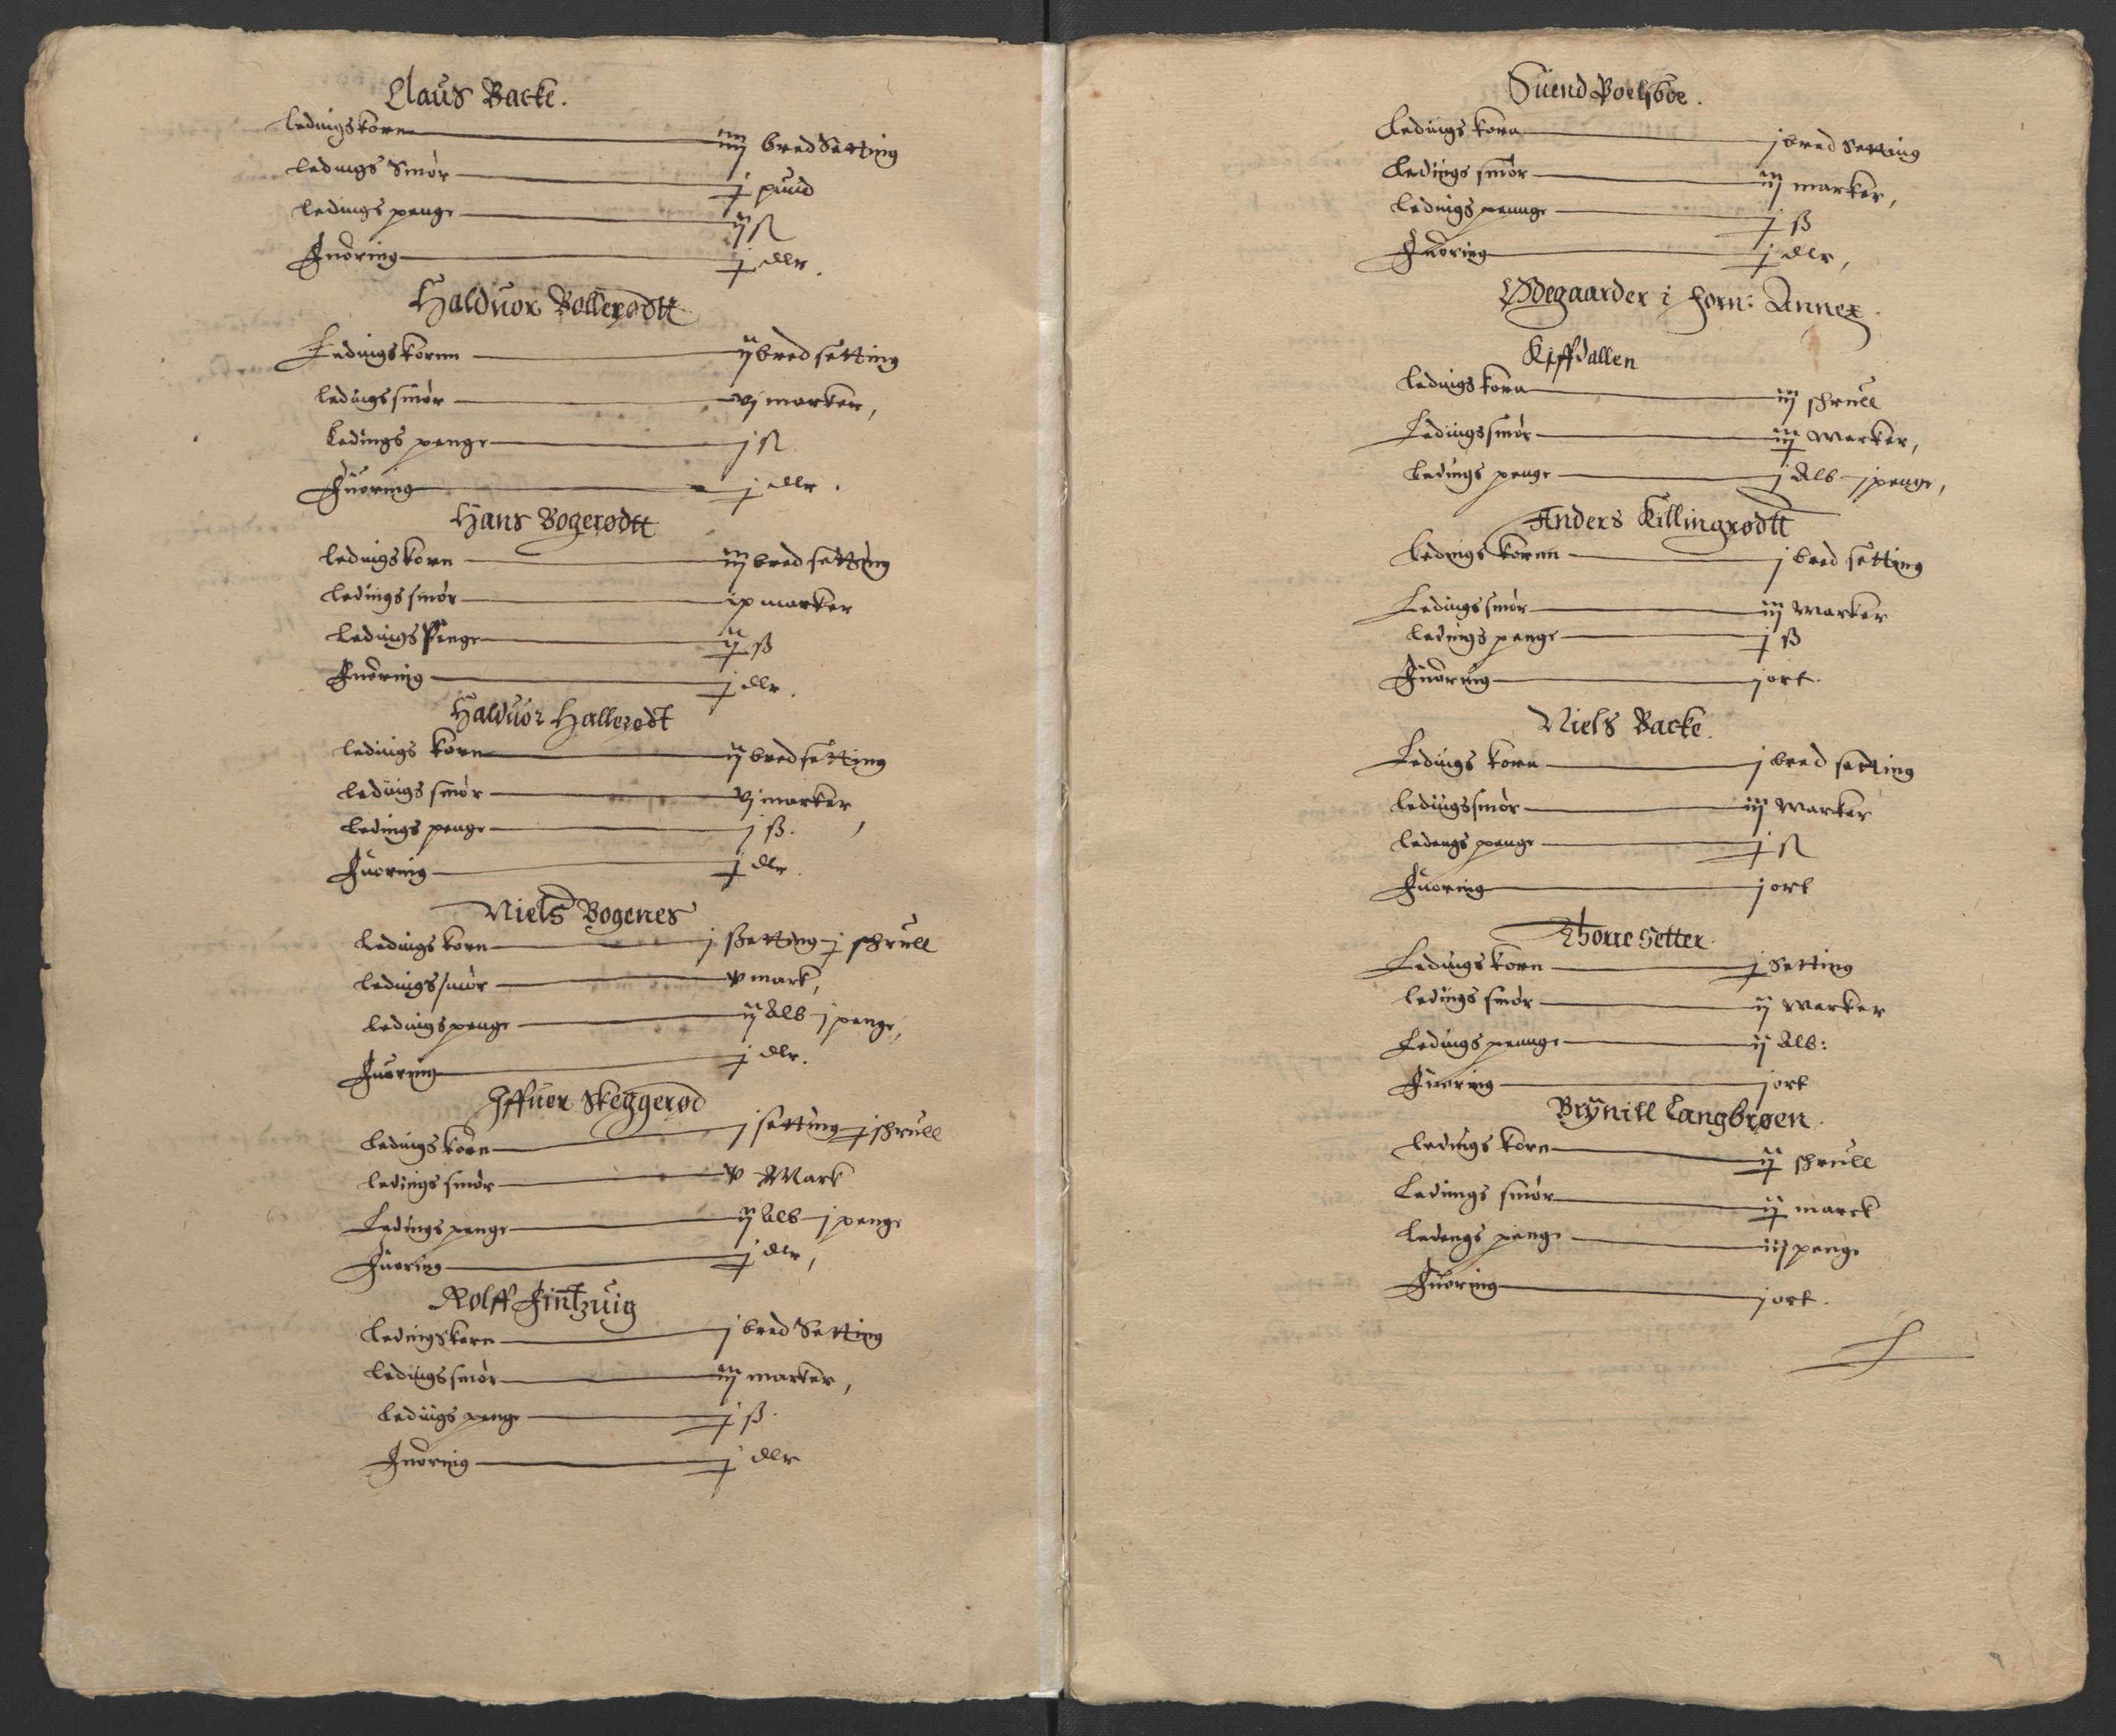 Claus Backe.
Ledingskorn — iiij bredsetting
Ledings Smør — j pund
Ledings penge — ij ß
Fuoring — j dlr.
Halduor Bollerødtt
Ledingskornn — ij bredsetting
Ledingssmør — vj marker,
Ledings penge — j ß
Fuoring — j dlr.
Hans Bogerødtt
Ledingskorn — iij bredsetting
Ledingssmør — ix marker
Ledings Penge — ij ß
Fuoring — j dlr.
Halduor Hallerødt
Ledings korn — ij bredsetting
Ledings smør — vj marker,
Ledings penge — j ß.
Fuoring — j dlr.
Niels Bogenes
Ledings korn — j setting j skrull
Ledingssmør — v mark,
Ledingspenge — ij Alb j penge,
Fuoring — j dlr.
Iffuer Skeggerød
Ledingskorn — j setting j skrull
Ledings smør — v Mark
Ledings penge — ij Alb j penge
Fuoring — j dlr,
Rolff Fintzuig
Ledingskorn — j bred Setting
Ledingssmør — iij marker,
Ledings penge — j ß.
Fuoring — j dlr
Suend Poelsboe.
Ledings korn — j bred Setting
Ledings smør — iij marker,
Ledings pennge — j ß
Fuoring — j dlr,
Ødegaarder i forn: Annex.
Kiffdallen
Ledings korn — iij skrull
Ledingssmør — iij Marker,
Ledings penge — j Alb j penge,
Anders Killingrødtt
Ledings kornn — j bred setting
Ledingssmør — iij Marker
Ledings penge — j ß
Fuoring — j ort.
Niels Backe.
Ledings korn — j bred setting
Ledingssmør — iij Marker
Ledengs penge — j ß
Fuoring — j ort
Thorre Setter.
Ledings korn — j Setting
Ledings smør — ij Marker
Ledings pennge — ij Alb:
Fuoring — j ort
Brÿnill Langbrøen.
Ledings korn — ij skrull
Ledings smør — ij marck
Ledengs penge — iij penge
Fuoring — j ort.